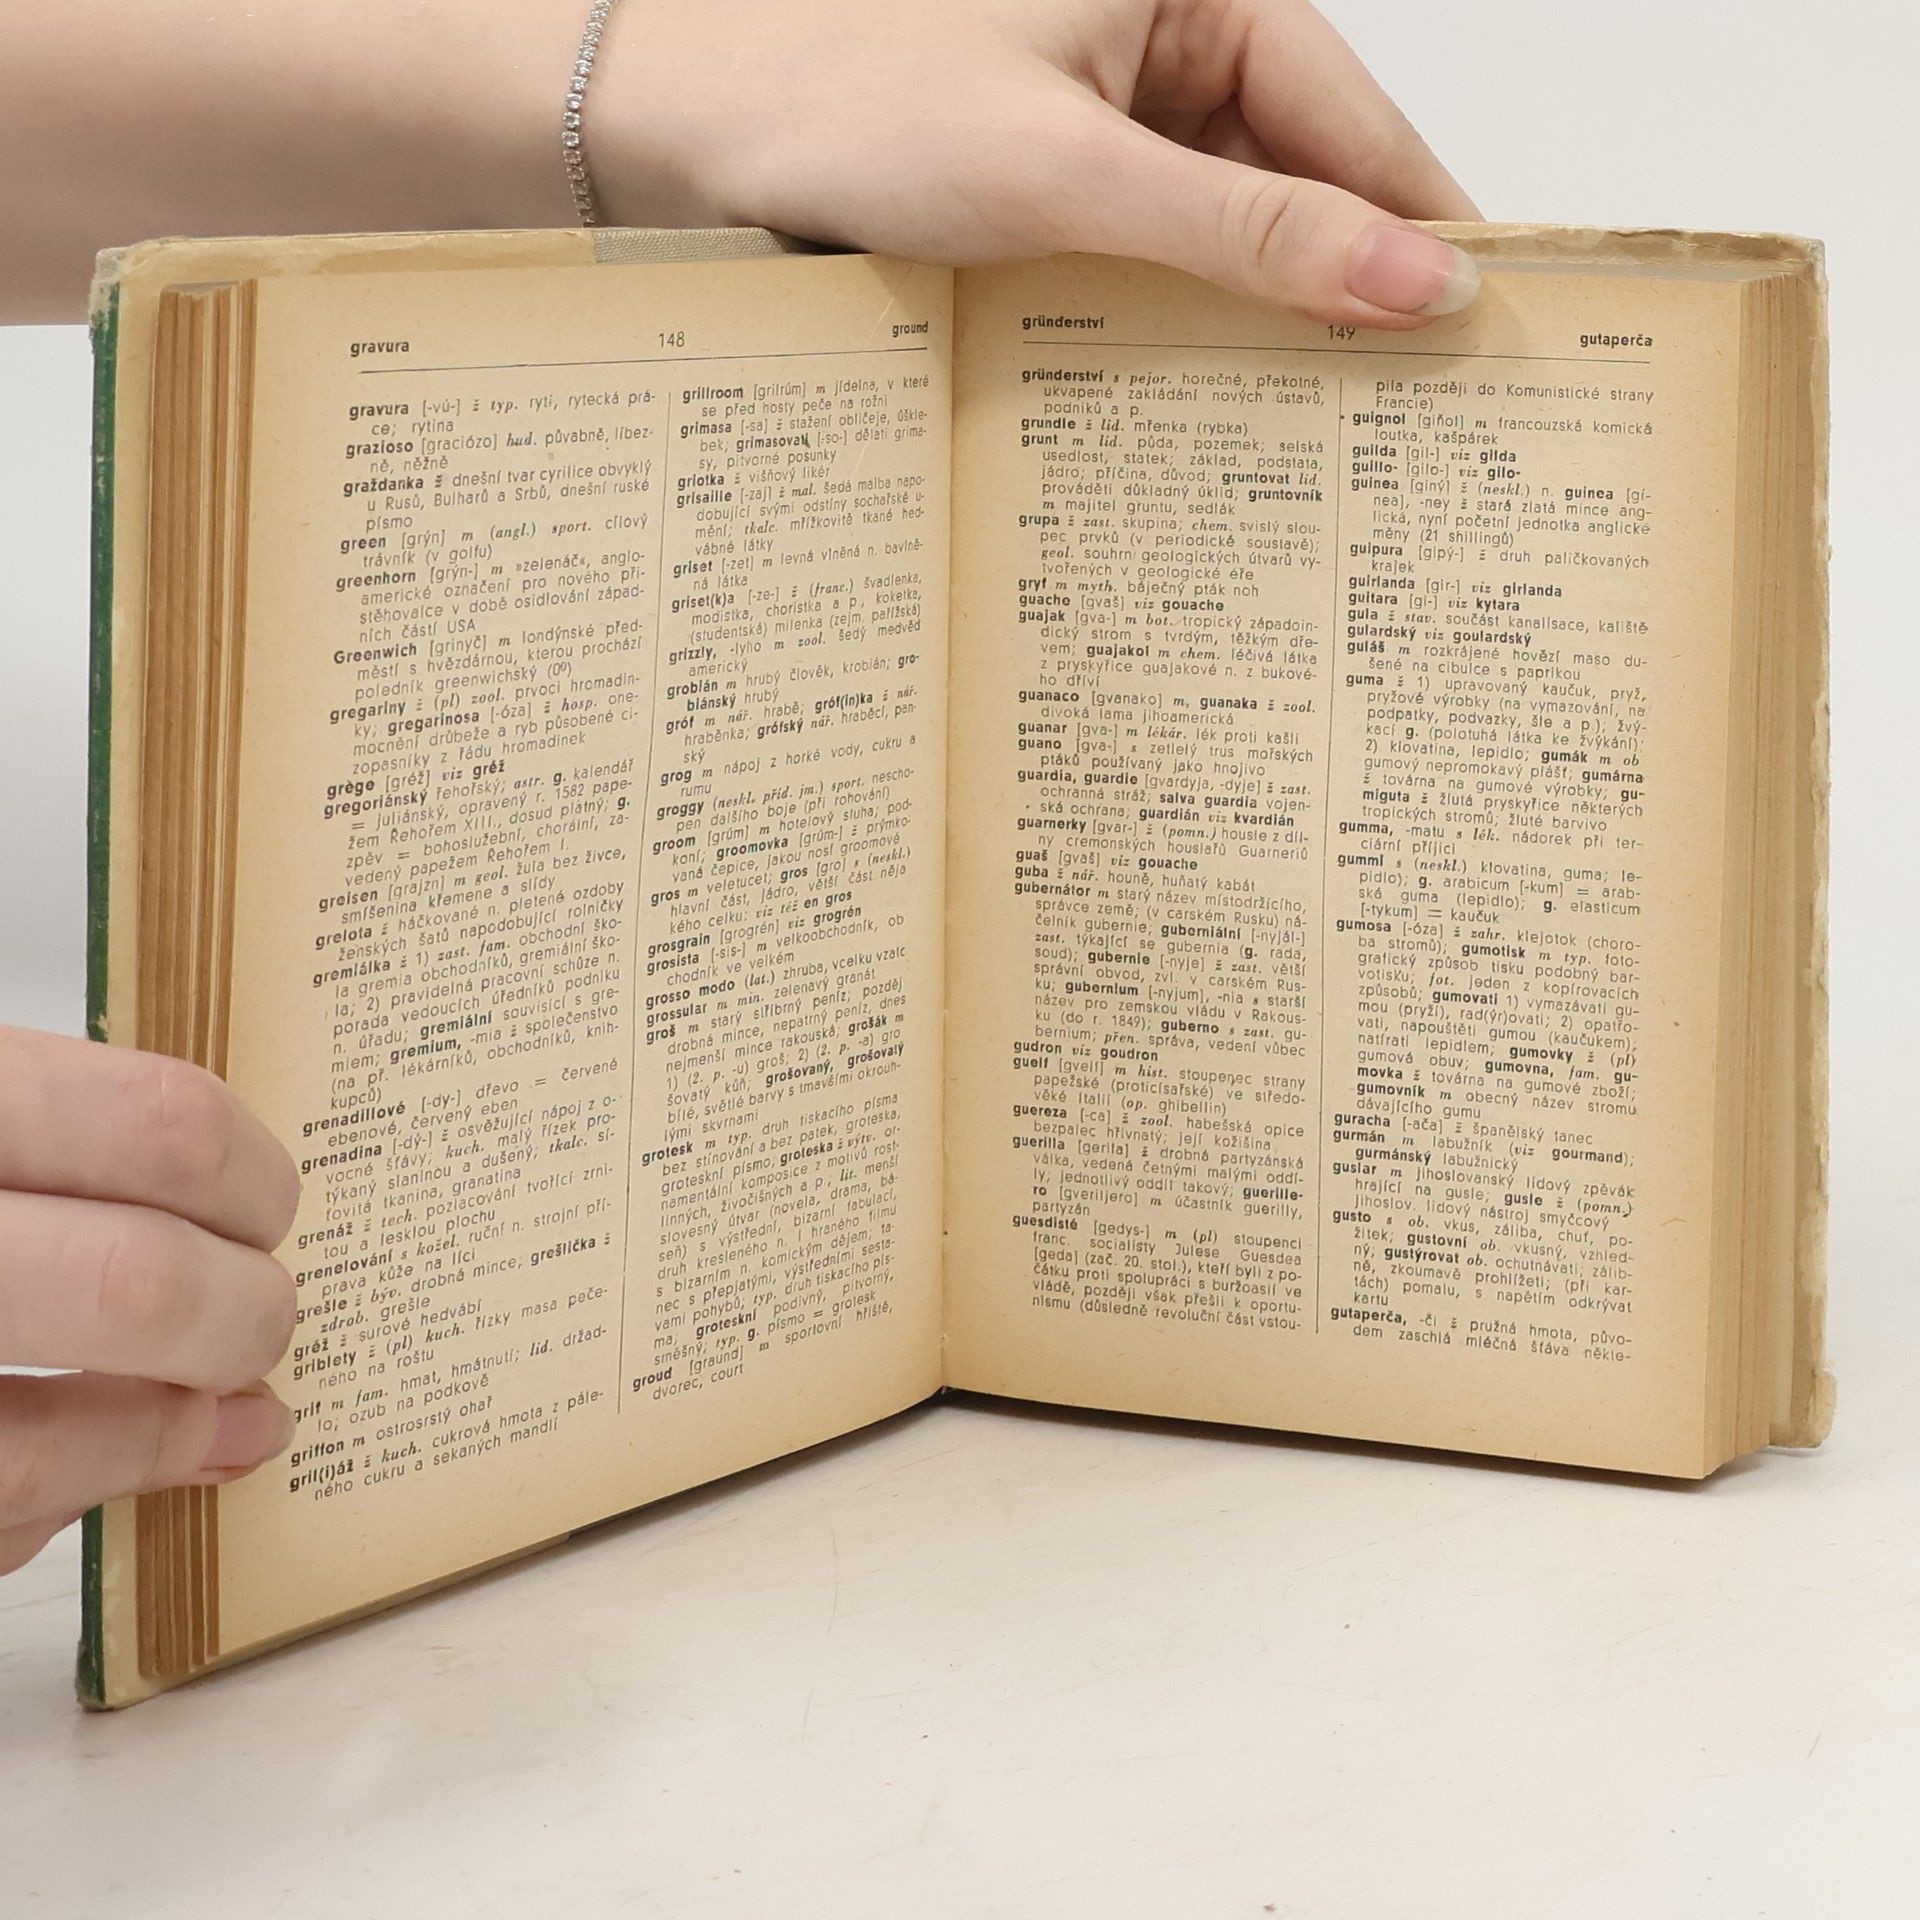 gravura 148 ground
gravura [-vú-] ž typ. rytí, rytecká prá-
ce; rytina
grazioso [graciózo] hud. půvabně, líbez-
ně, něžně
graždanka ž dnešní tvar cyrilice obvyklý
u Rusů, Bulharů a Srbů, dnešní ruské
písmo
green [grýn] m (angl.) sport. cílový
trávník (v golfu)
greenhorn [grýn-] m »zelenáč«, anglo-
americké označení pro nového při-
stěhovalce v době osidlování západ-
ních částí USA
Greenwich [grinyč] m londýnské před-
městí s hvězdárnou, kterou prochází
poledník greenwichský (0⁰)
gregariny ž (pl) zool. prvoci hromadin-
ky; gregarinosa [-óza] ž hosp. one-
mocnění drůbeže a ryb působené ci-
zopasníky z řádu hromadinek
grège [gréž] viz gréž
gregoriánský řehořský; astr. g. kalendář
= juliánský, opravený r. 1582 pape-
žem Řehořem XIII., dosud platný; g.
zpěv = bohoslužební, chorální, za-
vedený papežem Řehořem I.
greisen [grajzn] m geol. žula bez živce,
smíšenina křemene a slídy
grelota ž háčkované n. pletené ozdoby
ženských šatů napodobující rolničky
gremiálka ž 1) zast. fam. obchodní ško-
la gremia obchodníků, gremiální ško-
la; 2) pravidelná pracovní schůze n.
porada vedoucích úředníků podniku
n. úřadu; gremiální souvisící s gre-
miem; gremium, -mia ž společenstvo
(na př. lékárníků, obchodníků, knih-
kupců)
grenadillové [-dy-] dřevo = červené
ebenové, červený eben
grenadina [-dý-] ž osvěžující nápoj z o-
vocné šťávy; kuch. malý řízek pro-
týkaný slaninou a dušený; tkalc. sí-
ťovitá tkanina, granatina
grenáž ž tech. pozlacování tvořící zrni-
tou a lesklou plochu
grenelování s kožel. ruční n. strojní pří-
prava kůže na líci
grešle ž býv. drobná mince; grešlička ž
zdrob. grešle
gréž ž surové hedvábí
griblety ž (pl) kuch. řízky masa peče-
ného na roštu
grif m fam. hmat, hmátnutí; lid. držad-
lo; ozub na podkově
griffon m ostrosrstý ohař
gril(i)áž ž kuch. cukrová hmota z pále-
ného cukru a sekaných mandlí
grillroom [grilrúm] m jídelna, v které
se před hosty peče na rožni
grimasa [-sa] ž stažení obličeje, úškle-
bek; grimasovati [-so-] dělati grima-
sy, pitvorné posunky
griotka ž višňový likér
grisaille [-zaj] ž mal. šedá malba napo-
dobující svými odstíny sochařské u-
mění; tkalc. mřížkovitě tkané hed-
vábné látky
griset [-zet] m levná vlněná n. bavlně-
ná látka
griset(k)a [-ze-] ž (franc.) švadlenka,
modistka, choristka a p., koketka,
(studentská) milenka (zejm. pařížská)
grizzly, -lyho m zool. šedý medvěd
americký
grobián m hrubý člověk, krobián; gro-
biánský hrubý
gróf m nář. hrabě; gróf(in)ka ž nář.
hraběnka; grófský nář. hraběcí, pan-
ský
grog m nápoj z horké vody, cukru a
rumu
groggy (neskl. příd. jm.) sport. nescho-
pen dalšího boje (při rohování)
groom [grúm] m hotelový sluha; pod-
koní; groomovka [grúm-] ž prýmko-
vaná čepice, jakou nosí groomové
gros m veletucet; gros [gro] s (neskl.)
hlavní část, jádro, větší část něja
kého celku: viz též en gros
grosgrain [grogrén] viz grogrén
grosista [-sis-] m velkoobchodník, ob
chodník ve velkém
grosso modo (lat.) zhruba, vcelku vzatc
grossular m min. zelenavý granát
groš m starý stříbrný peníz; později
drobná mince, nepatrný peníz, dnes
nejmenší mince rakouská; grošák m
1) (2. p. -u) groš; 2) (2. p. -a) gro
šovatý kůň; grošovaný, grošovatý
bílé, světlé barvy s tmavšími okrouh-
lými skvrnami
grotesk m typ. druh tiskacího písma
bez stínování a bez patek, groteska,
groteskní písmo; groteska ž výtv. or-
namentální komposice z motivů rost-
linných, živočišných a p.; lit. menší
slovesný útvar (novela, drama, bá-
seň) s výstřední, bizarní fabulací,
druh kresleného n. i hraného filmu
s bizarním n. komickým dějem; ta-
nec s přepjatými, výstředními sesta-
vami pohybů; typ. druh tiskacího pís-
ma; groteskní podivný, pitvorný,
směšný; typ. g. písmo = grotesk
groud [graund] m sportovní hřiště,
dvorec, court
gründerství 149 gutaperča
gründerství s pejor. horečné, překotné,
ukvapené zakládání nových ústavů,
podniků a p.
grundle ž lid. mřenka (rybka)
grunt m lid. půda, pozemek; selská
usedlost, statek; základ, podstata,
jádro; příčina, důvod; gruntovat lid.
prováděti důkladný úklid; gruntovník
m majitel gruntu, sedlák
grupa ž zast. skupina; chem. svislý slou-
pec prvků (v periodické soustavě);
geol. souhrn geologických útvarů vy-
tvořených v geologické éře
gryf m myth. báječný pták noh
guache [gvaš] viz gouache
guajak [gva-] m bot. tropický západoin-
dický strom s tvrdým, těžkým dře-
vem; guajakol m chem. léčivá látka
z pryskyřice guajakové n. z bukové-
ho dříví
guanaco [gvanako] m, guanaka ž zool.
divoká lama jihoamerická
guanar [gva-] m lékár. lék proti kašli
guano [gva-] s zetlelý trus mořských
ptáků používaný jako hnojivo
guardia, guardie [gvardyja, -dyje] ž zast.
ochranná stráž; salva guardia vojen-
ská ochrana; guardián viz kvardián
guarnerky [gvar-] ž (pomn.) housle z díl-
ny cremonských houslařů Guarneriů
guaš [gvaš] viz gouache
guba ž nář. houně, huňatý kabát
gubernátor m starý název místodržícího,
správce země; (v carském Rusku) ná-
čelník gubernie; guberniální [-nyjál-]
zast. týkající se gubernia (g. rada,
soud); gubernie [-nyje] ž zast. větší
správní obvod, zvl. v carském Rus-
ku; gubernium [-nyjum], -nia s starší
název pro zemskou vládu v Rakous-
ku (do r. 1849); guberno s zast. gu-
bernium; přen. správa, vedení vůbec
gudron viz goudron
guelf [gvelf] m hist. stoupenec strany
papežské (proticísařské) ve středo-
věké Italii (op. ghibellin)
guereza [-ca] ž zool. habešská opice
bezpalec hřivnatý; její kožišina
guerilla [gerila] ž drobná partyzánská
válka, vedená četnými malými oddí-
ly; jednotlivý oddíl takový; guerille-
ro [gveriljero] m účastník guerilly,
partyzán
guesdisté [gedys-] m (pl) stoupenci
franc. socialisty Julese Guesdea
[geda] (zač. 20. stol.), kteří byli z po-
čátku proti spolupráci s buržoasií ve
vládě, později však přešli k oportu-
nismu (důsledně revoluční část vstou-
pila později do Komunistické strany
Francie)
guignol [giňol] m francouzská komická
loutka, kašpárek
guilda [gil-] viz gilda
guillo- [gilo-] viz gilo-
guinea [giný] ž (neskl.) n. guinea [gi-
nea], -ney ž stará zlatá mince ang-
lická, nyní početní jednotka anglické
měny (21 shillingů)
guipura [gipý-] ž druh paličkovaných
krajek
guirlanda [gir-] viz girlanda
guitara [gi-] viz kytara
gula ž stav. součást kanalisace, kaliště
gulardský viz goulardský
guláš m rozkrájené hovězí maso du-
šené na cibulce s paprikou
guma ž 1) upravovaný kaučuk, pryž,
pryžové výrobky (na vymazování, na
podpatky, podvazky, šle a p.); žvý-
kací g. (polotuhá látka ke žvýkání);
2) klovatina, lepidlo; gumák m ob
gumový nepromokavý plášť; gumárna
ž továrna na gumové výrobky; gu-
miguta ž žlutá pryskyřice některých
tropických stromů; žluté barvivo
gumma, -matu s lék. nádorek při ter-
ciární příjici
gummi s (neskl.) klovatina, guma; le-
pidlo); g. arabicum [-kum] = arab-
ská guma (lepidlo); g. elasticum
[-tykum] = kaučuk
gumosa [-óza] ž zahr. klejotok (choro-
ba stromů); gumotisk m typ. foto-
grafický způsob tisku podobný bar-
votisku; fot. jeden z kopírovacích
způsobů; gumovati 1) vymazávati gu-
mou (pryží), rad(ýr)ovati; 2) opatřo-
vati, napouštěti gumou (kaučukem);
natírati lepidlem; gumovky ž (pl)
gumová obuv; gumovna, fam. gu-
movka ž továrna na gumové zboží;
gumovník m obecný název stromu
dávajícího gumu
guracha [-ača] ž španělský tanec
gurmán m labužník (viz gourmand);
gurmánský labužnický
guslar m jihoslovanský lidový zpěvák
hrající na gusle; gusle ž (pomn.)
jihoslov. lidový nástroj smyčcový
gusto s ob. vkus, záliba, chuť, po-
žitek; gustovní ob. vkusný, vzhled-
ný; gustýrovat ob. ochutnávati; zálib-
ně, zkoumavě prohlížeti; (při kar-
tách) pomalu, s napětím odkrývat
kartu
gutaperča, -či ž pružná hmota, půvo-
dem zaschlá mléčná šťáva někte-